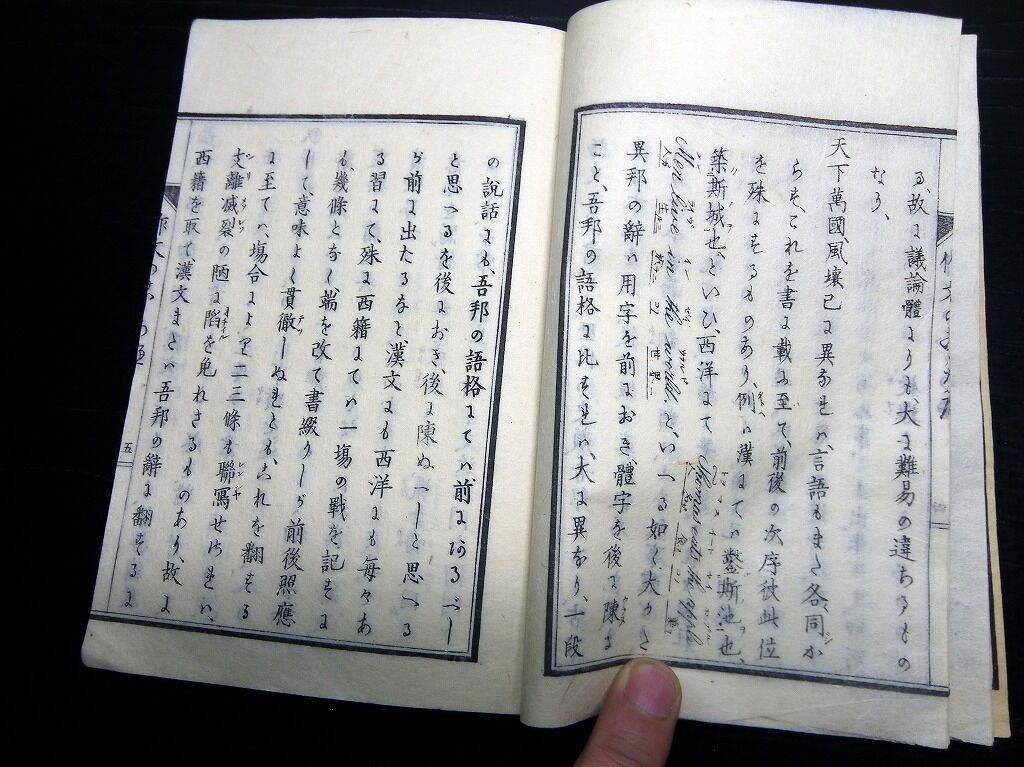 る、故に議論體よりも、大に難易の違ちあるもの
なり、
天下萬國、風壤已に異なれバ、言語もまた各、同じか
らず、これを書に載るに至て、前後の次序彼此位
を殊にするものあり、例へバ漢にてハ鑿斯池也、
築斯城也、といひ、西洋にて Thomas eats the apple
Men live in the world といへる如く、大かた
異邦の辭ハ用字を前におき、體字を後に陳る
こと、吾邦の語格に比すれバ、大に異なり、一段
の説話にも、吾邦の語格にてハ、前にあるべし
と思へるを後におき、後に陳ぬべしと思へる
が前に出たるなど、漢文にも西洋にも毎々あ
る習にて、殊に西籍にてハ一塲の戰を記すに
も、幾條となく端を改て書綴りしが前後照應
して、意味よく貫徹しぬれども、これを翻する
に至てハ、塲合により二三條も聯寫せざれバ、
支離滅裂の陋に陷を免れざるものあり、故に
西籍を取て漢文または吾邦の辭に翻するに
五